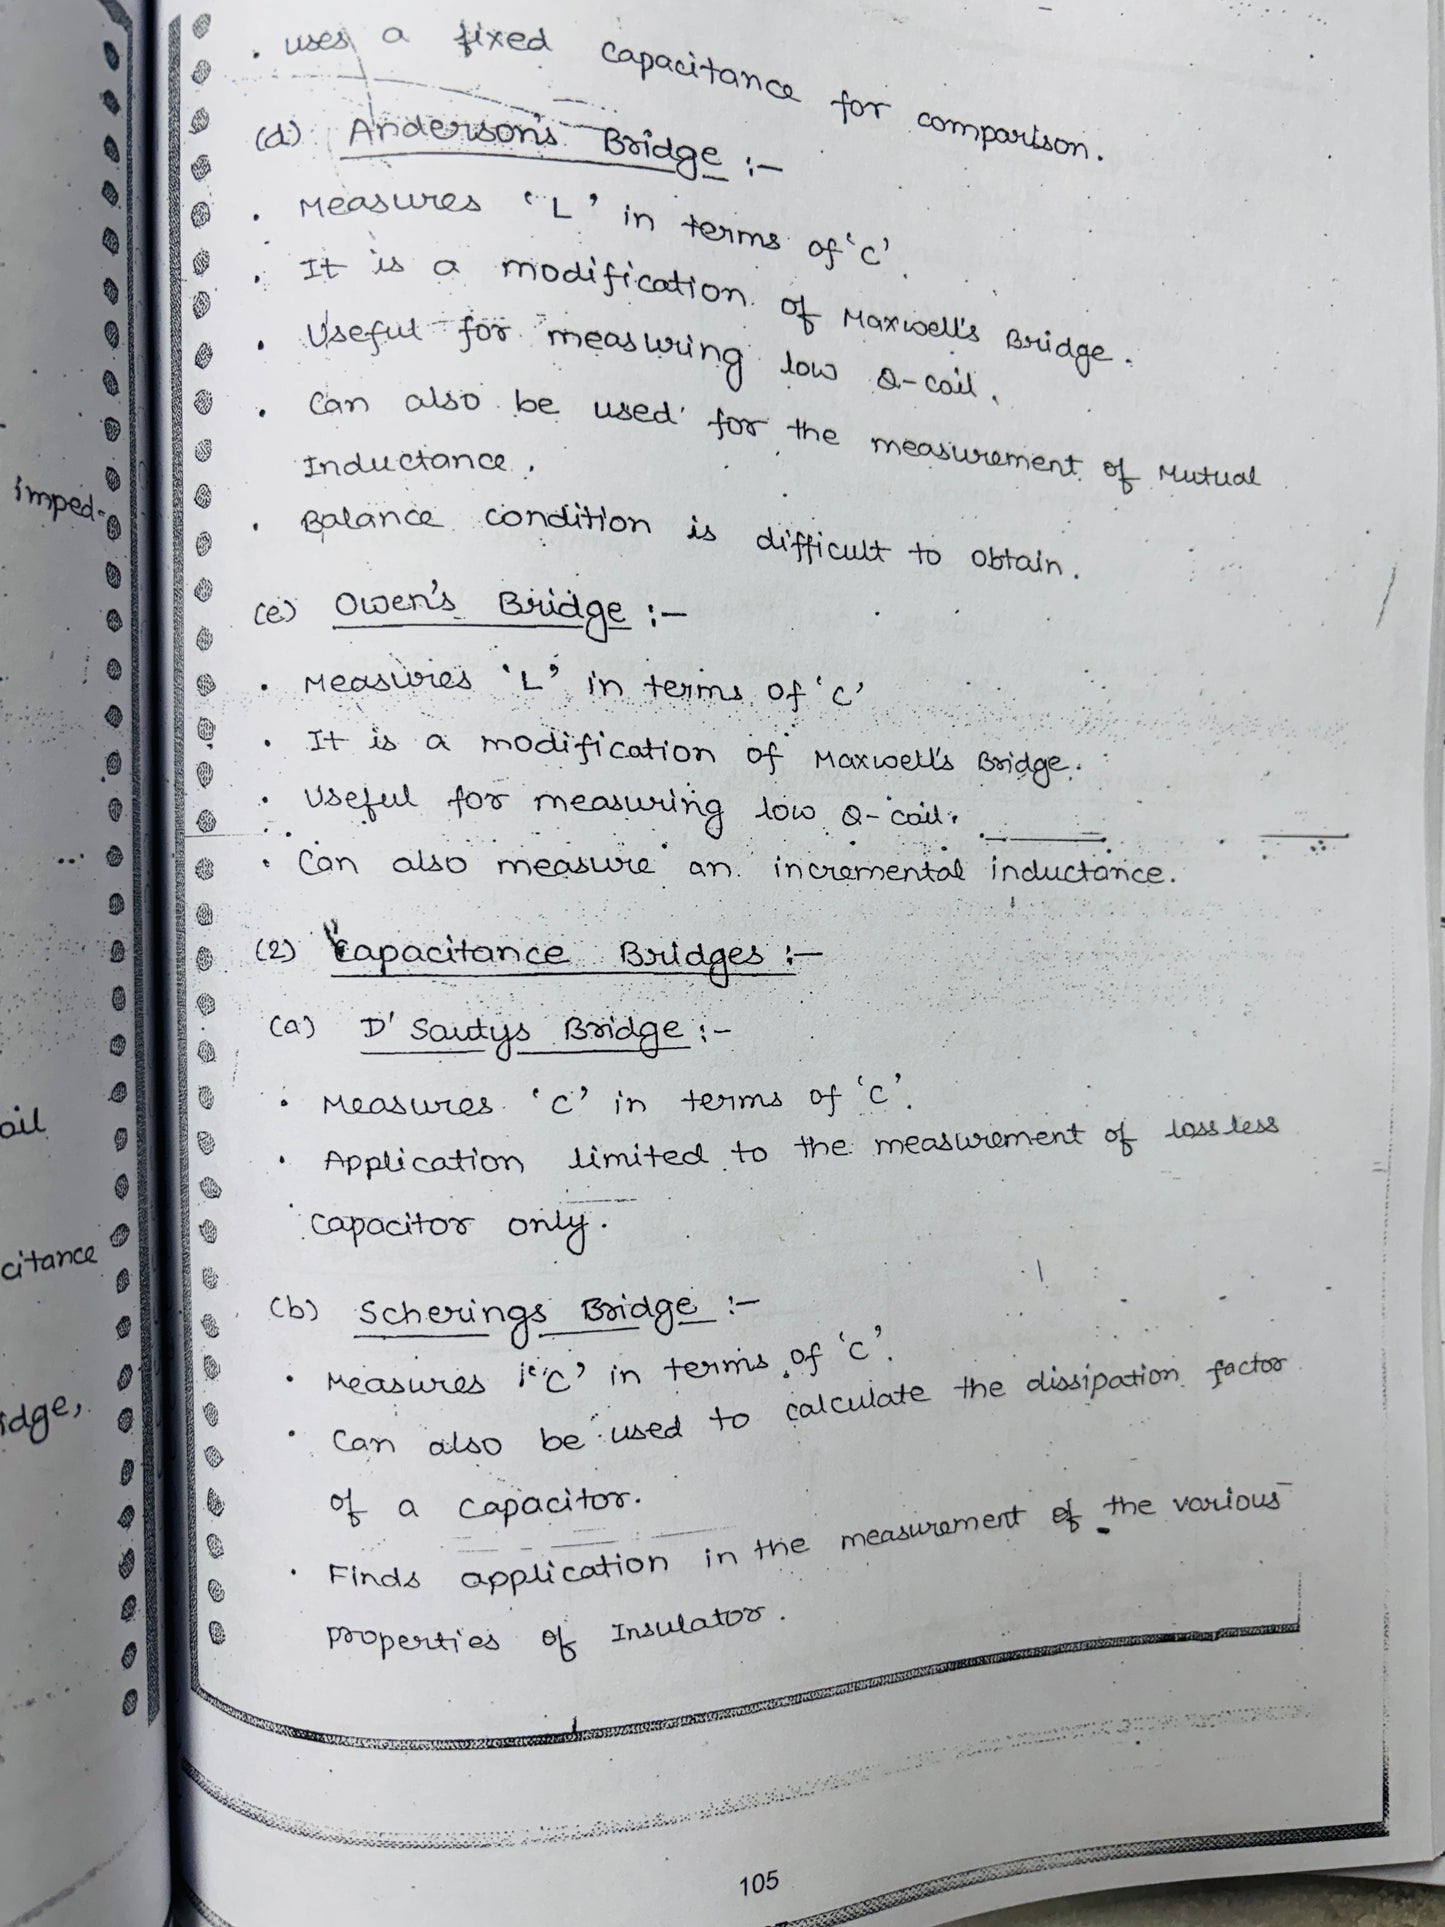 imped-
oil
citance
idge,
. uses a fixed capacitance for comparison.
(d) Anderson's Bridge :-
. Measures 'L' in terms of 'C'.
. It is a modification of Maxwell's Bridge.
. Useful for measuring low Q-coil.
. Can also be used for the measurement of Mutual
Inductance.
. Balance condition is difficult to obtain.
(e) Owen's Bridge :-
. Measures 'L' in terms of 'C'
. It is a modification of Maxwell's Bridge.
. Useful for measuring low Q-coil.
. Can also measure an incremental inductance.
(2) Capacitance Bridges :-
(a) D' Sautys Bridge :-
. Measures 'C' in terms of 'C'.
. Application limited to the measurement of lossless
capacitor only.
(b) Scherings Bridge :-
. Measures 'C' in terms of 'C'.
. Can also be used to calculate the dissipation factor
of a capacitor.
. Finds application in the measurement of the various
properties of Insulator.
105